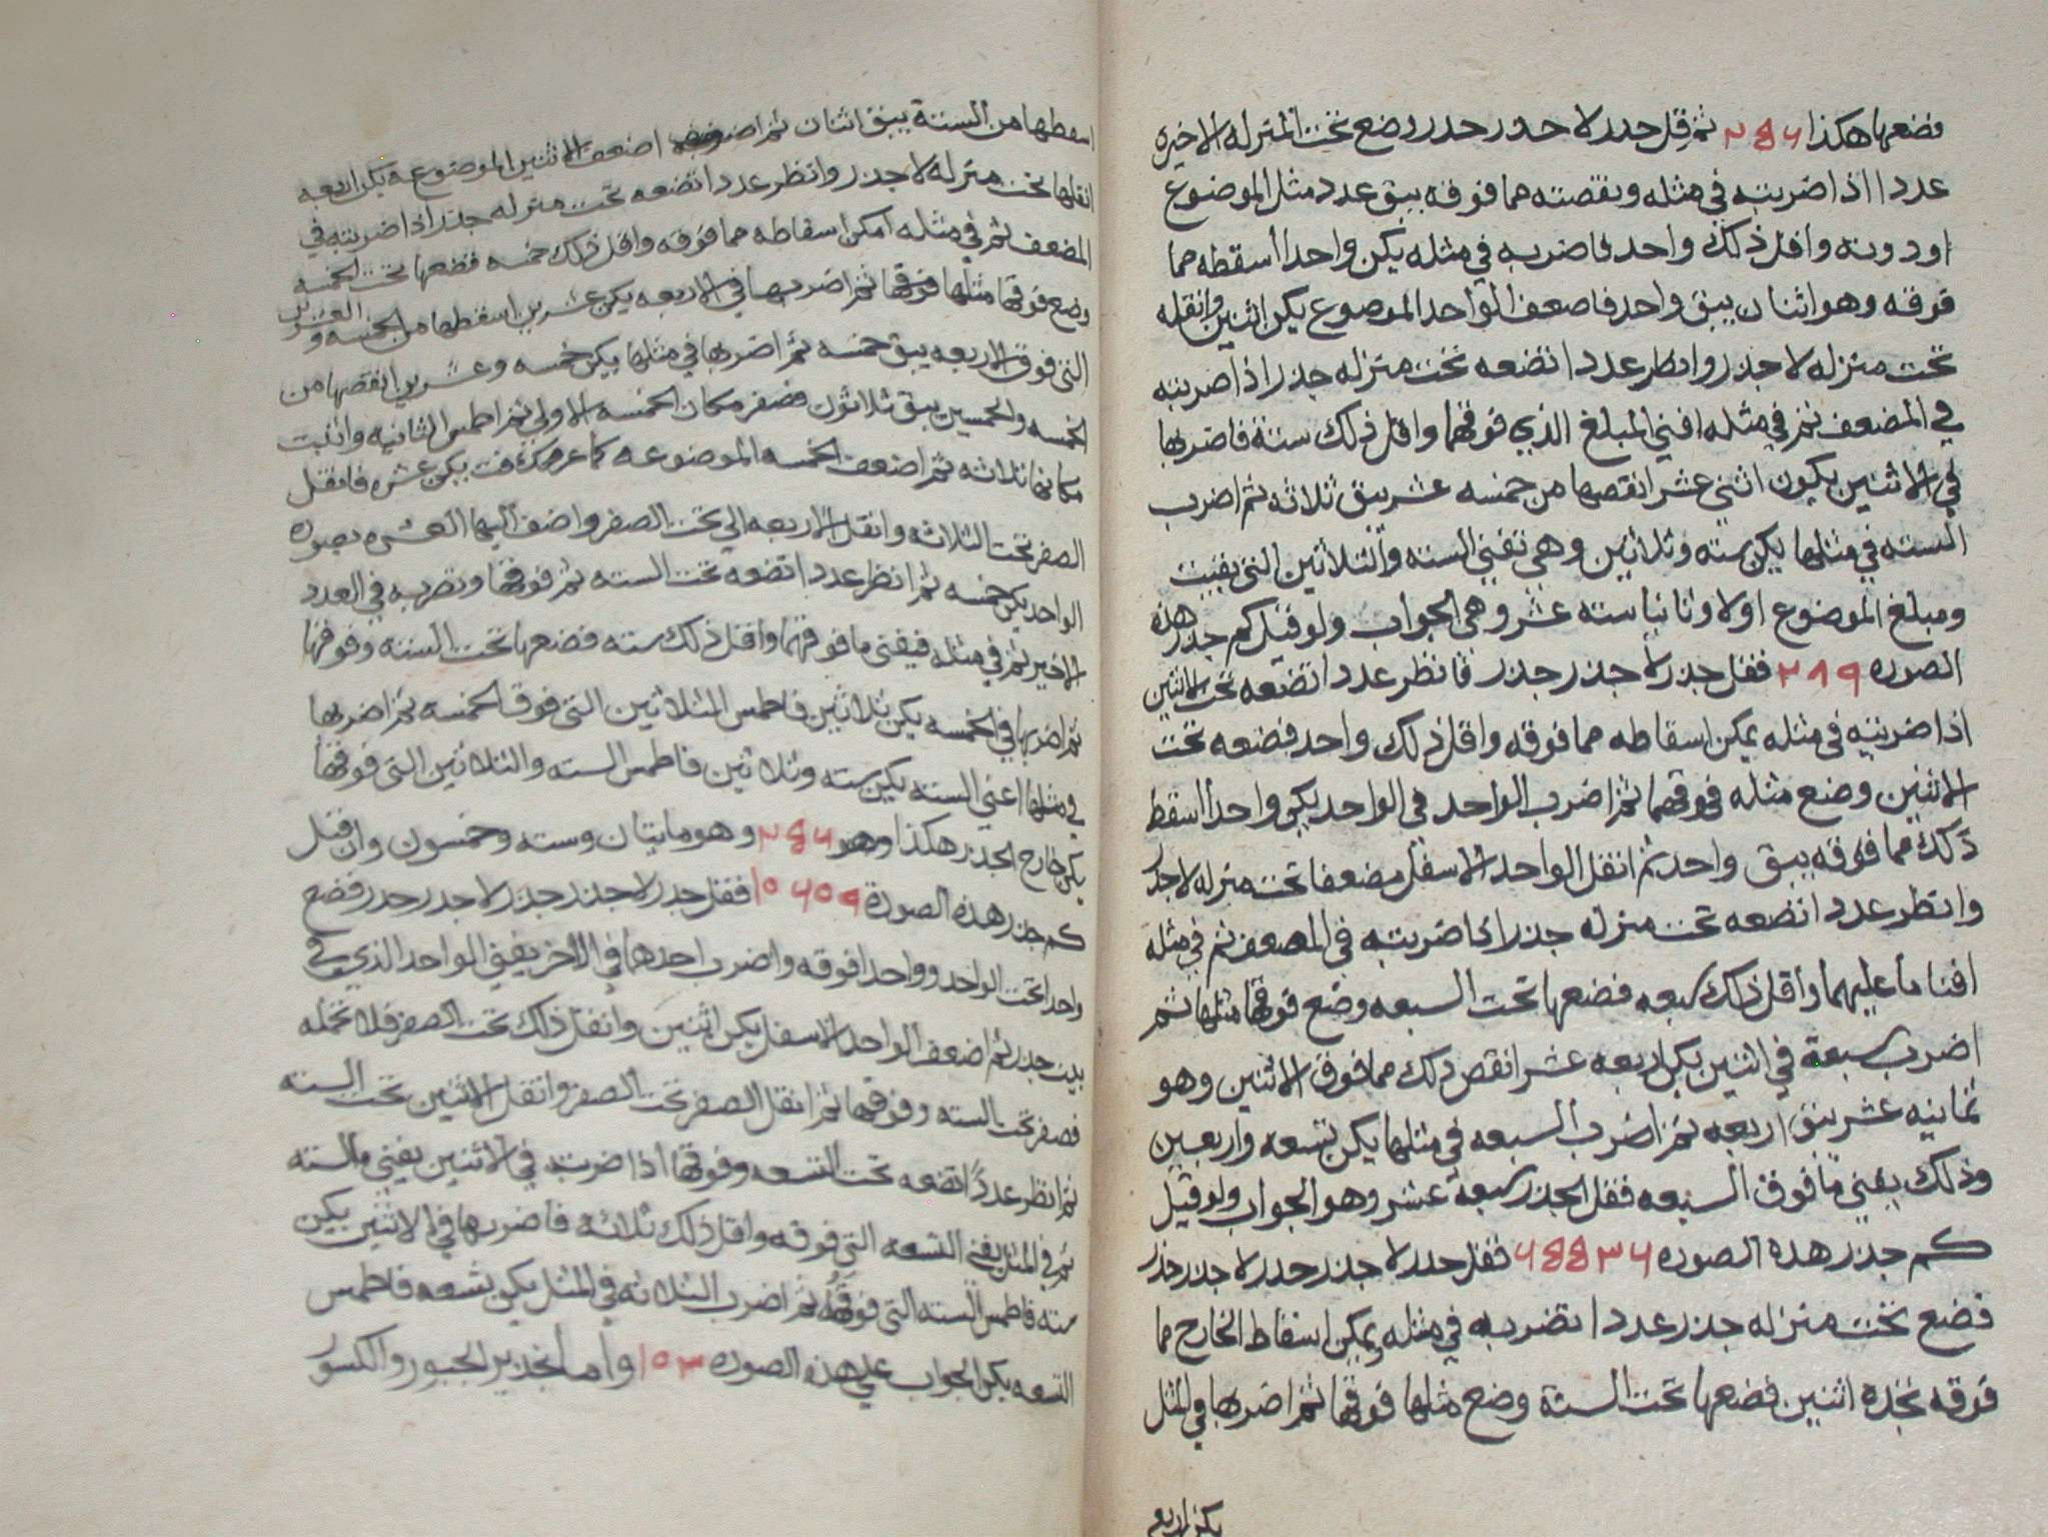 فضعها هكذا ٢٥٦ ثم قل جذر لا جذر جذر وضع تحت المنزله الاخيره
عددا اذا ضربته في مثله ونقصته مما فوقه يبقى عدد مثل الموضوع
او دونه واقل ذلك واحد فاضربه في مثله يكن واحدا أسقطه مما
فوقه وهو اثنان يبق واحد فاضعف الواحد الموضوع يكن اثنين وانقله
تحت منزله لا جذر وانظر عددا تضعه تحت منزله جذر اذا ضربته
في المضعف ثم في مثله افني المبلغ الذي فوقهما واقل ذلك ستة فاضربها
في الاثنين يكون اثنى عشر انقصها من خمسه عشر يبق ثلاثه ثم اضرب
السته في مثلها يكن سته وثلاثين وهي تفني السته والثلاثين التي بقيت
ومبلغ الموضوع اولا وثانيا سته عشر وهي الجواب ولو قيل كم جذر هذه
الصوره ٢٨٩ فقل جذر لا جذر جذر فانظر عددا تضعه تحت الاثنين
اذا ضربته في مثله يمكن اسقاطه مما فوقه واقل ذلك واحد فضعه تحت
الاثنين وضع مثله فوقهما ثم اضرب الواحد في الواحد يكن واحدا أسقط
ذلك مما فوقه يبق واحد ثم انقل الواحد الاسفل مضعفا تحت منزله لا جذر
وانظر عددا تضعه تحت منزله جذر اذا ضربته في المضعف ثم في مثله
افنا ما عليهما وأقل ذلك سبعه فضعها تحت السبعه وضع فوقها مثلها ثم
اضرب سبعة في اثنين يكن اربعه عشر انقص ذلك مما فوق الاثنين وهو
ثمانيه عشر يبق اربعه ثم اضرب السبعه في مثلها يكن تسعه واربعين
وذلك يفني ما فوق السبعه فقل الجذر سبعة عشر وهو الجواب ولو قيل
كم جذر هذه الصوره ٦٥٥٣٦ فقل جذر لا جذر جذر لا جذر جذر
فضع تحت منزله جذر عددا تضربه في مثله ويمكن اسقاط الخارج مما
فوقه تجده اثنين فضعها تحت الستة وضع مثلها فوقها ثم اضربها في المثل
يكن اربع
اسقطها من الستة يبق اثنان ثم اضعف الاثنين الموضوعه يكن اربعه
انقلها تحت منزله لا جذر وانظر عددا تضعه تحت منزله جذر اذا ضربته في
المضعف ثم في مثله امكن اسقاطه مما فوقه واقل ذلك خمسه فضعها تحت الخمسه
وضع فوقها مثلها فوقها ثم اضربها في الاربعه يكن عشرين اسقطها من الخمسه والعشرين
التي فوق الاربعه يبق خمسه ثم اضربها في مثلها يكن خمسه وعشرين انقصها من
الخمسه والخمسين يبق ثلاثون فصفر مكان الخمسه الاولى ثم اطمس الثانيه واثبت
مكانها ثلاثه ثم اضعف الخمسه الموضوعه كما عرفت يكن عشره فانقل
الصفر تحت الثلاثه وانقل الاربعه الي تحت الصفر واضف اليها العشره بصوره
الواحد يكن خمسه ثم انظر عددا تضعه تحت السته ثم فوقها وتضربه في العدد
الاخير ثم في مثله فيفنى ما فوقهما واقل ذلك سته فضعها تحت السته وفوقها
ثم اضربها في الخمسه يكن ثلاثين فاطمس الثلاثين التي فوق الخمسه ثم اضربها
في مثلها اعني السته يكن سته وثلاثين فاطمس السته والثلاثين التي فوقها
يكن خارج الجذر هكذا وهو ٢٥٦ وهو مايتان وسته وخمسون وان قيل
كم جذر هذه الصورة ١٠٦٠٩ فقل جذر لا جذر جذر لا جذر جذر فضع
واحدا تحت الواحد وواحدا فوقه واضرب احدهما في الاخر يفني الواحد الذي في
بيت جذر ثم اضعف الواحد الاسفل يكن اثنين وانقل ذلك تحت الصفر فلا تحمله
فصفر تحت السته وفوقها ثم انقل الصفر تحت الصفر وانقل الاثنين تحت السته
ثم انظر عدداً تضعه تحت التسعه وفوقها اذا ضربت في الاثنين يفني السته
ثم في المثل يفني التسعه التي فوقه واقل ذلك ثلاثه فاضربها في الاثنين يكن
سته فاطمس السته التي فوقه ثم اضرب الثلاثه في المثل يكن تسعه فاطمس
التسعه يكن الجواب على هذه الصوره ١٠٣ وأما تجذير الجبور والكسور